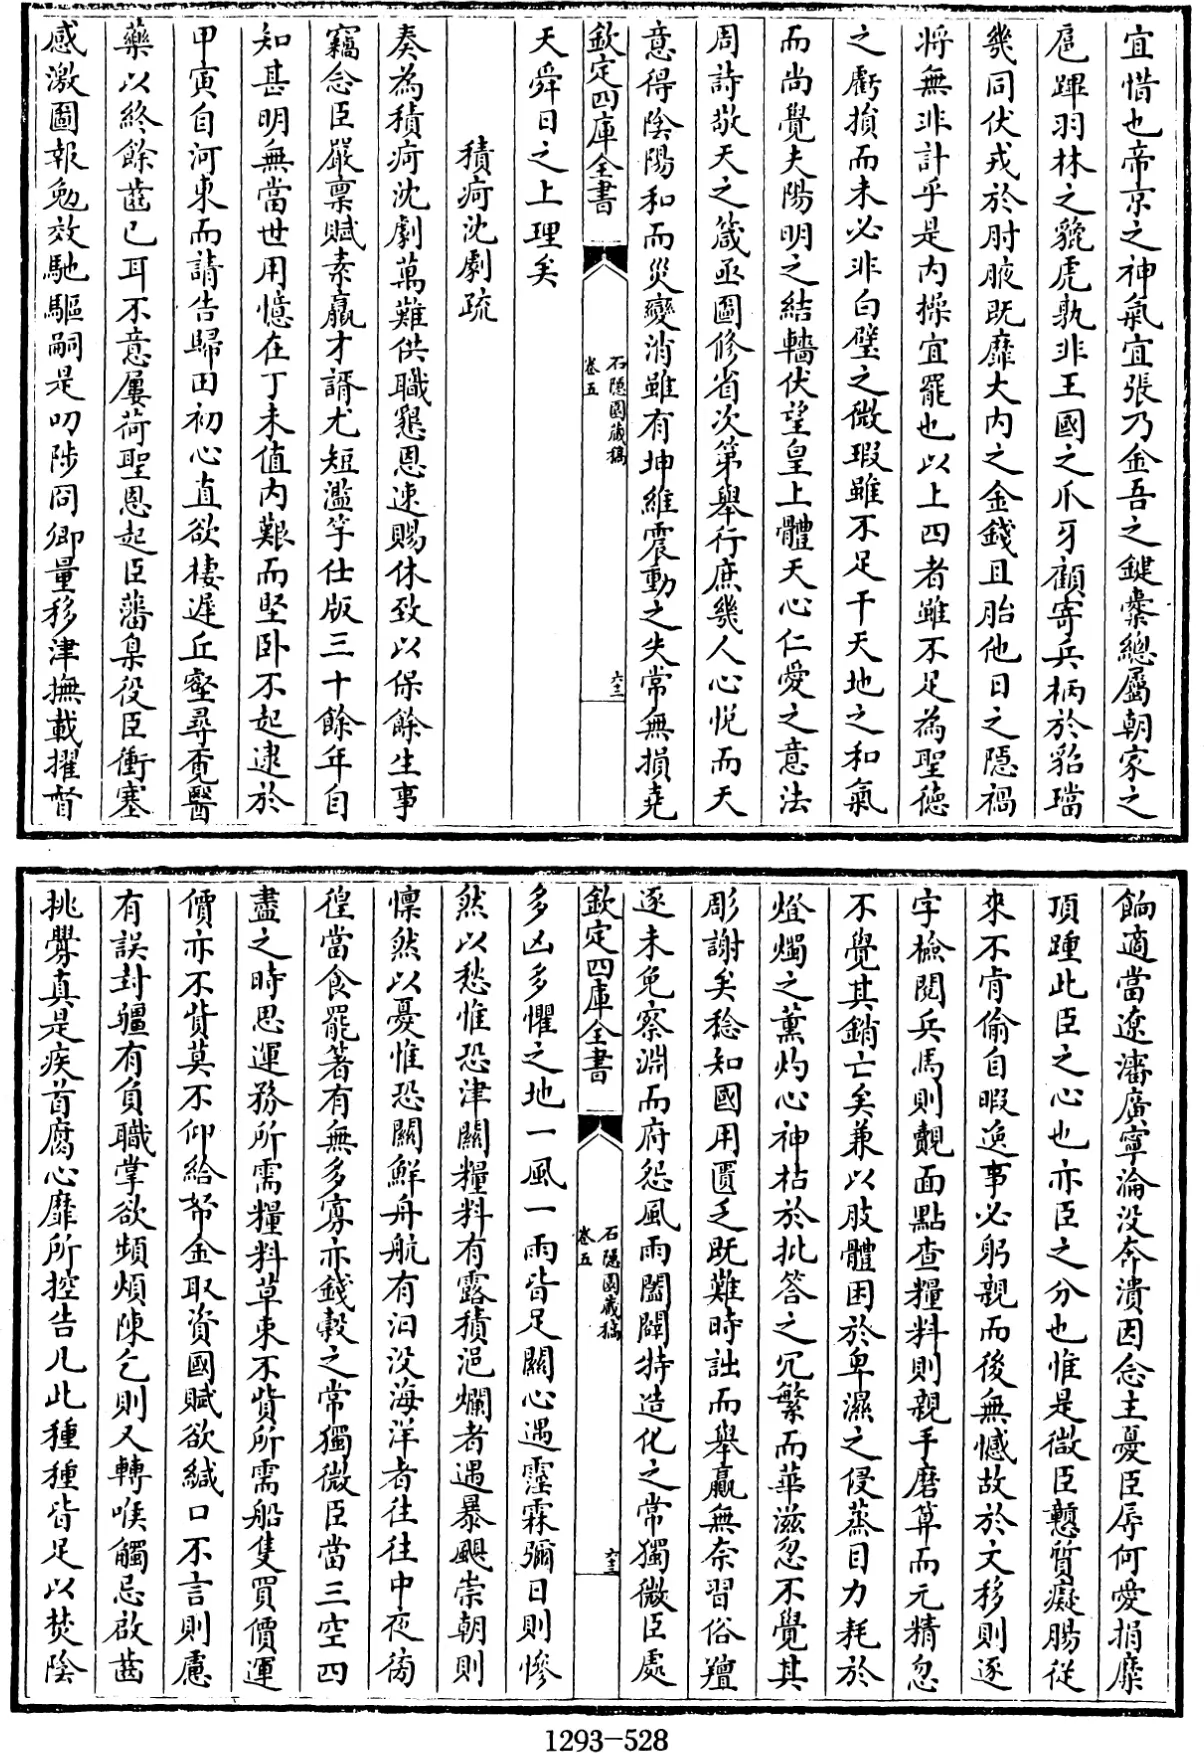 宜惜也帝京之神氣宜張乃金吾之鍵橐總屬朝家之
扈蹕羽林之貔虎孰非王國之爪牙顧寄兵柄於貂璫
幾同伏戎於肘腋既靡大内之金錢且胎他日之隱禍
將無非計乎是内操宜罷也以上四者雖不足為聖德
之虧損而未必非白璧之微瑕雖不足干天地之和氣
而尚覺夫陽明之結轖伏望皇上體天心仁愛之意法
周詩敬天之箴亟圖修省次第舉行庶幾人心悦而天
意得陰陽和而災變消雖有坤維震動之失常無損堯
欽定四庫全書
石隱園藏稿
卷五
六三
天舜日之上理矣
積疴沈劇疏
奏為積疴沈劇萬難供職懇恩速賜休致以保餘生事
竊念臣嚴禀賦素羸才諝尤短濫竽仕版三十餘年自
知甚明無當世用憶在丁未值内艱而堅卧不起逮於
甲寅自河東而請告歸田初心直欲棲遲丘壑尋覔醫
藥以終餘齒已耳不意屢荷聖恩起臣藩臬役臣衝塞
感激圖報勉效馳驅嗣是叨陟冏卿量移津撫載擢督
餉適當遼瀋廣寧淪没奔潰因念主憂臣辱何愛捐糜
頂踵此臣之心也亦臣之分也惟是微臣戇質癡腸從
來不肯偷自暇逸事必躬親而後無憾故於文移則逐
字檢閱兵馬則觀面點查糧料則親手磨算而元精忽
不覺其銷亡矣兼以肢體困於卑濕之侵蒸目力耗於
燈燭之薰灼心神枯於批答之冗繁而華滋忽不覺其
彫謝矣稔知國用匱乏既難時詘而舉羸無奈習俗羶
逐未免察淵而府怨風雨闔闢特造化之常獨微臣處
欽定四庫全書
石隱園藏稿
卷五
六三
多凶多懼之地一風一雨皆足關心遇霪霖彌日則慘
然以愁惟恐津關糧料有露積浥爛者遇暴颶崇朝則
懔然以憂惟恐關鮮舟航有汨没海洋者往往中夜徬
徨當食罷著有無多寡亦錢穀之常獨微臣當三空四
盡之時思運務所需糧料草束不貲所需船隻買價運
價亦不貲莫不仰給帑金取資國賦欲緘口不言則慮
有誤封疆有負職掌欲頻煩陳乞則又轉喉觸忌啟齒
挑釁真是疾首腐心靡所控告凡此種種皆足以焚陰
1293-528